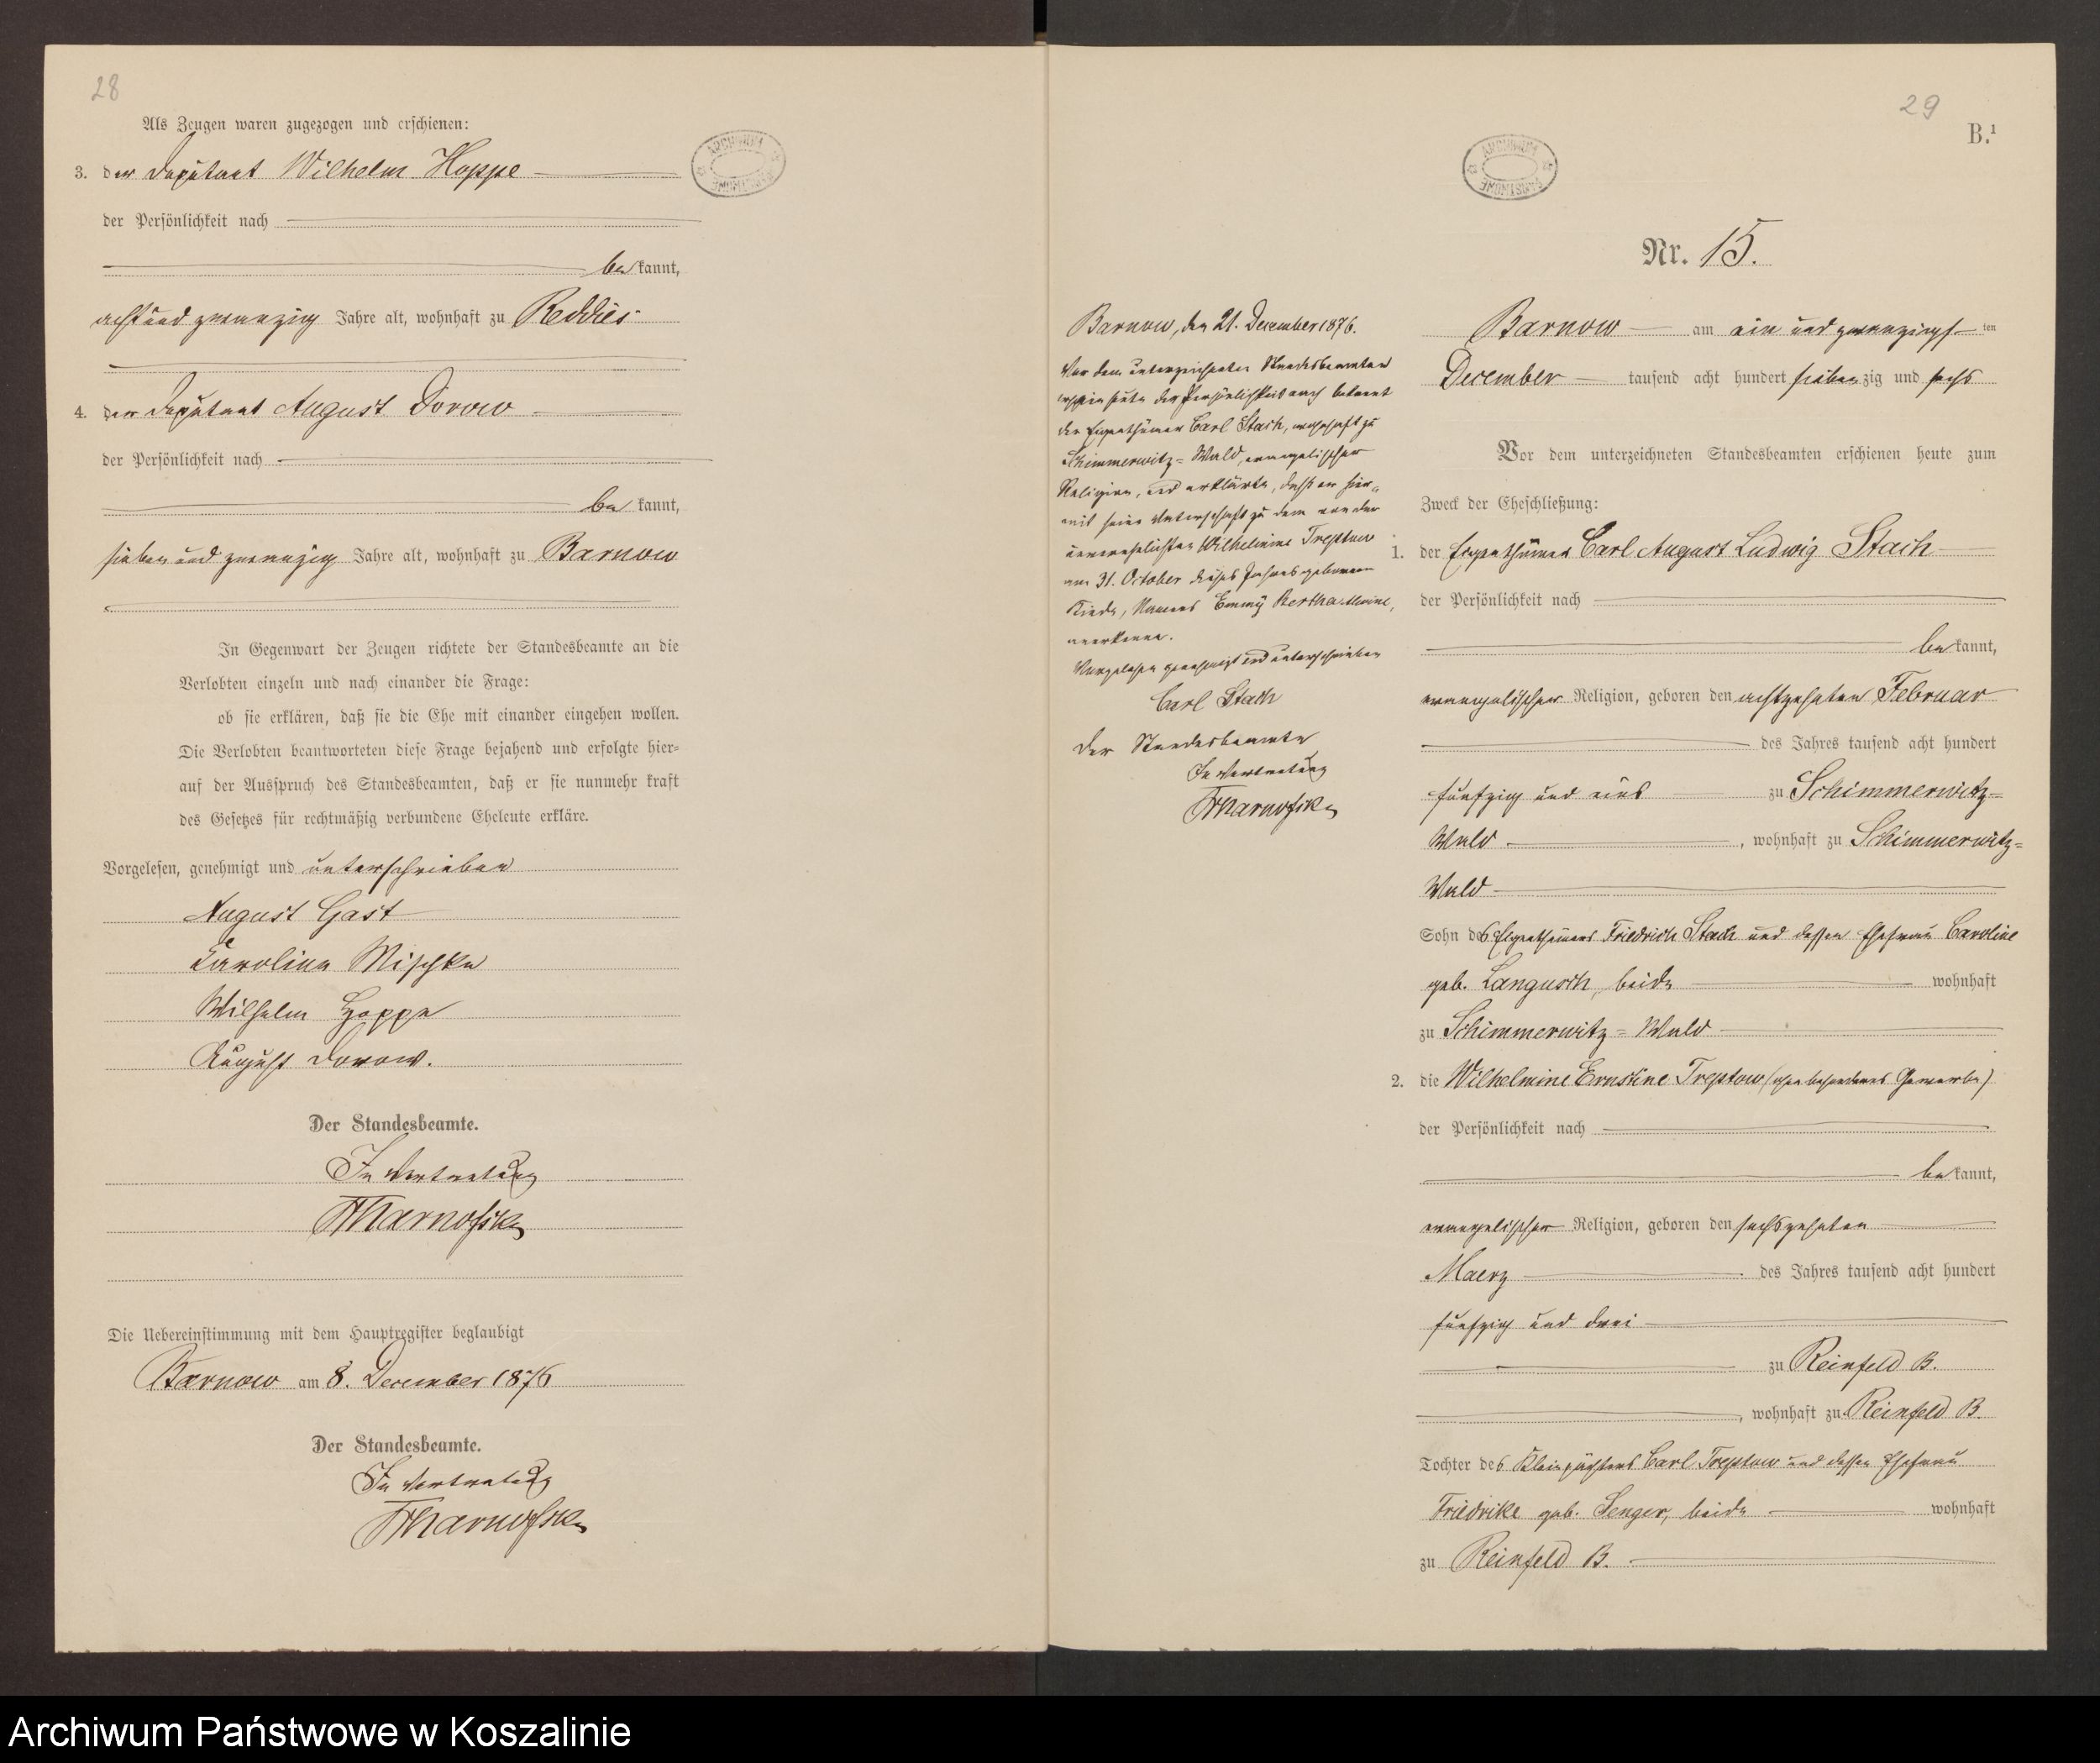 28
Als Zeugen waren zugezogen und erschienen:
3. der Deputant Wilhelm Hoppe
der Persönlichkeit nach
bekannt,
acht und zwanzig Jahre alt, wohnhaft zu Reddies
4. der Deputant August Dorow
der Persönlichkeit nach
bekannt,
sieben und zwanzig Jahre alt, wohnhaft zu Barnow
In Gegenwart der Zeugen richtete der Standesbeamte an die
Verlobten einzeln und nach einander die Frage:
ob sie erklären, daß sie die Ehe mit einander eingehen wollen.
Die Verlobten beantworteten diese Frage bejahend und erfolgte hier-
auf der Ausspruch des Standesbeamten, daß er sie nunmehr kraft
des Gesetzes für rechtmäßig verbundene Eheleute erkläre.
Vorgelesen, genehmigt und unterschrieben
August Gast
Karoline Mischke
Wilhelm Hoppe
August Dorow.
Der Standesbeamte.
In Vertretung
Die Uebereinstimmung mit dem Hauptregister beglaubigt
Barnow am 8. December 1876
Der Standesbeamte.
In Vertretung
ARCHIWUM
29
B.¹
ARCHIWUM
Nr. 15.
Barnow, den 21. December 1876.
Vor dem unterzeichneten Standesbeamten
erschien heute der Persönlichkeit nach bekannt
der Eigenthümer Carl Stach, wohnhaft zu
Schimmerwitz-Wald, evangelischer
Religion, und erklärte, daß er hier-
mit seine Vaterschaft zu dem von der
unverehelichten Wilhelmine Treptow
am 31. October dieses Jahres geborenen
Kinde, Namens Emmy Bertha
anerkenne.
Vorgelesen genehmigt und unterschrieben
Carl Stach
Der Standesbeamte
In Vertretung
Barnow am ein und zwanzigsten
December tausend acht hundert siebenzig und sechs
Vor dem unterzeichneten Standesbeamten erschienen heute zum
Zweck der Eheschließung:
1. der Eigenthümer Carl August Ludwig Stach
der Persönlichkeit nach
bekannt,
evangelischer Religion, geboren den achtzehnten Februar
des Jahres tausend acht hundert
fünfzig und eins zu Schimmerwitz-
Wald, wohnhaft zu Schimmerwitz-
Wald
Sohn des Eigenthümers Friedrich Stach und dessen Ehefrau Caroline
geb. Langusch, beide wohnhaft
zu Schimmerwitz-Wald
2. die Wilhelmine Ernstine Treptow (ohne besonderes Gewerbe)
der Persönlichkeit nach
bekannt,
evangelischer Religion, geboren den sechszehnten
Maerz des Jahres tausend acht hundert
fünfzig und drei
zu Reinfeld B.
, wohnhaft zu Reinfeld B.
Tochter des Kleinpächters Carl Treptow und dessen Ehefrau
Friedrike geb. Senger, beide wohnhaft
zu Reinfeld B.
Archiwum Państwowe w Koszalinie